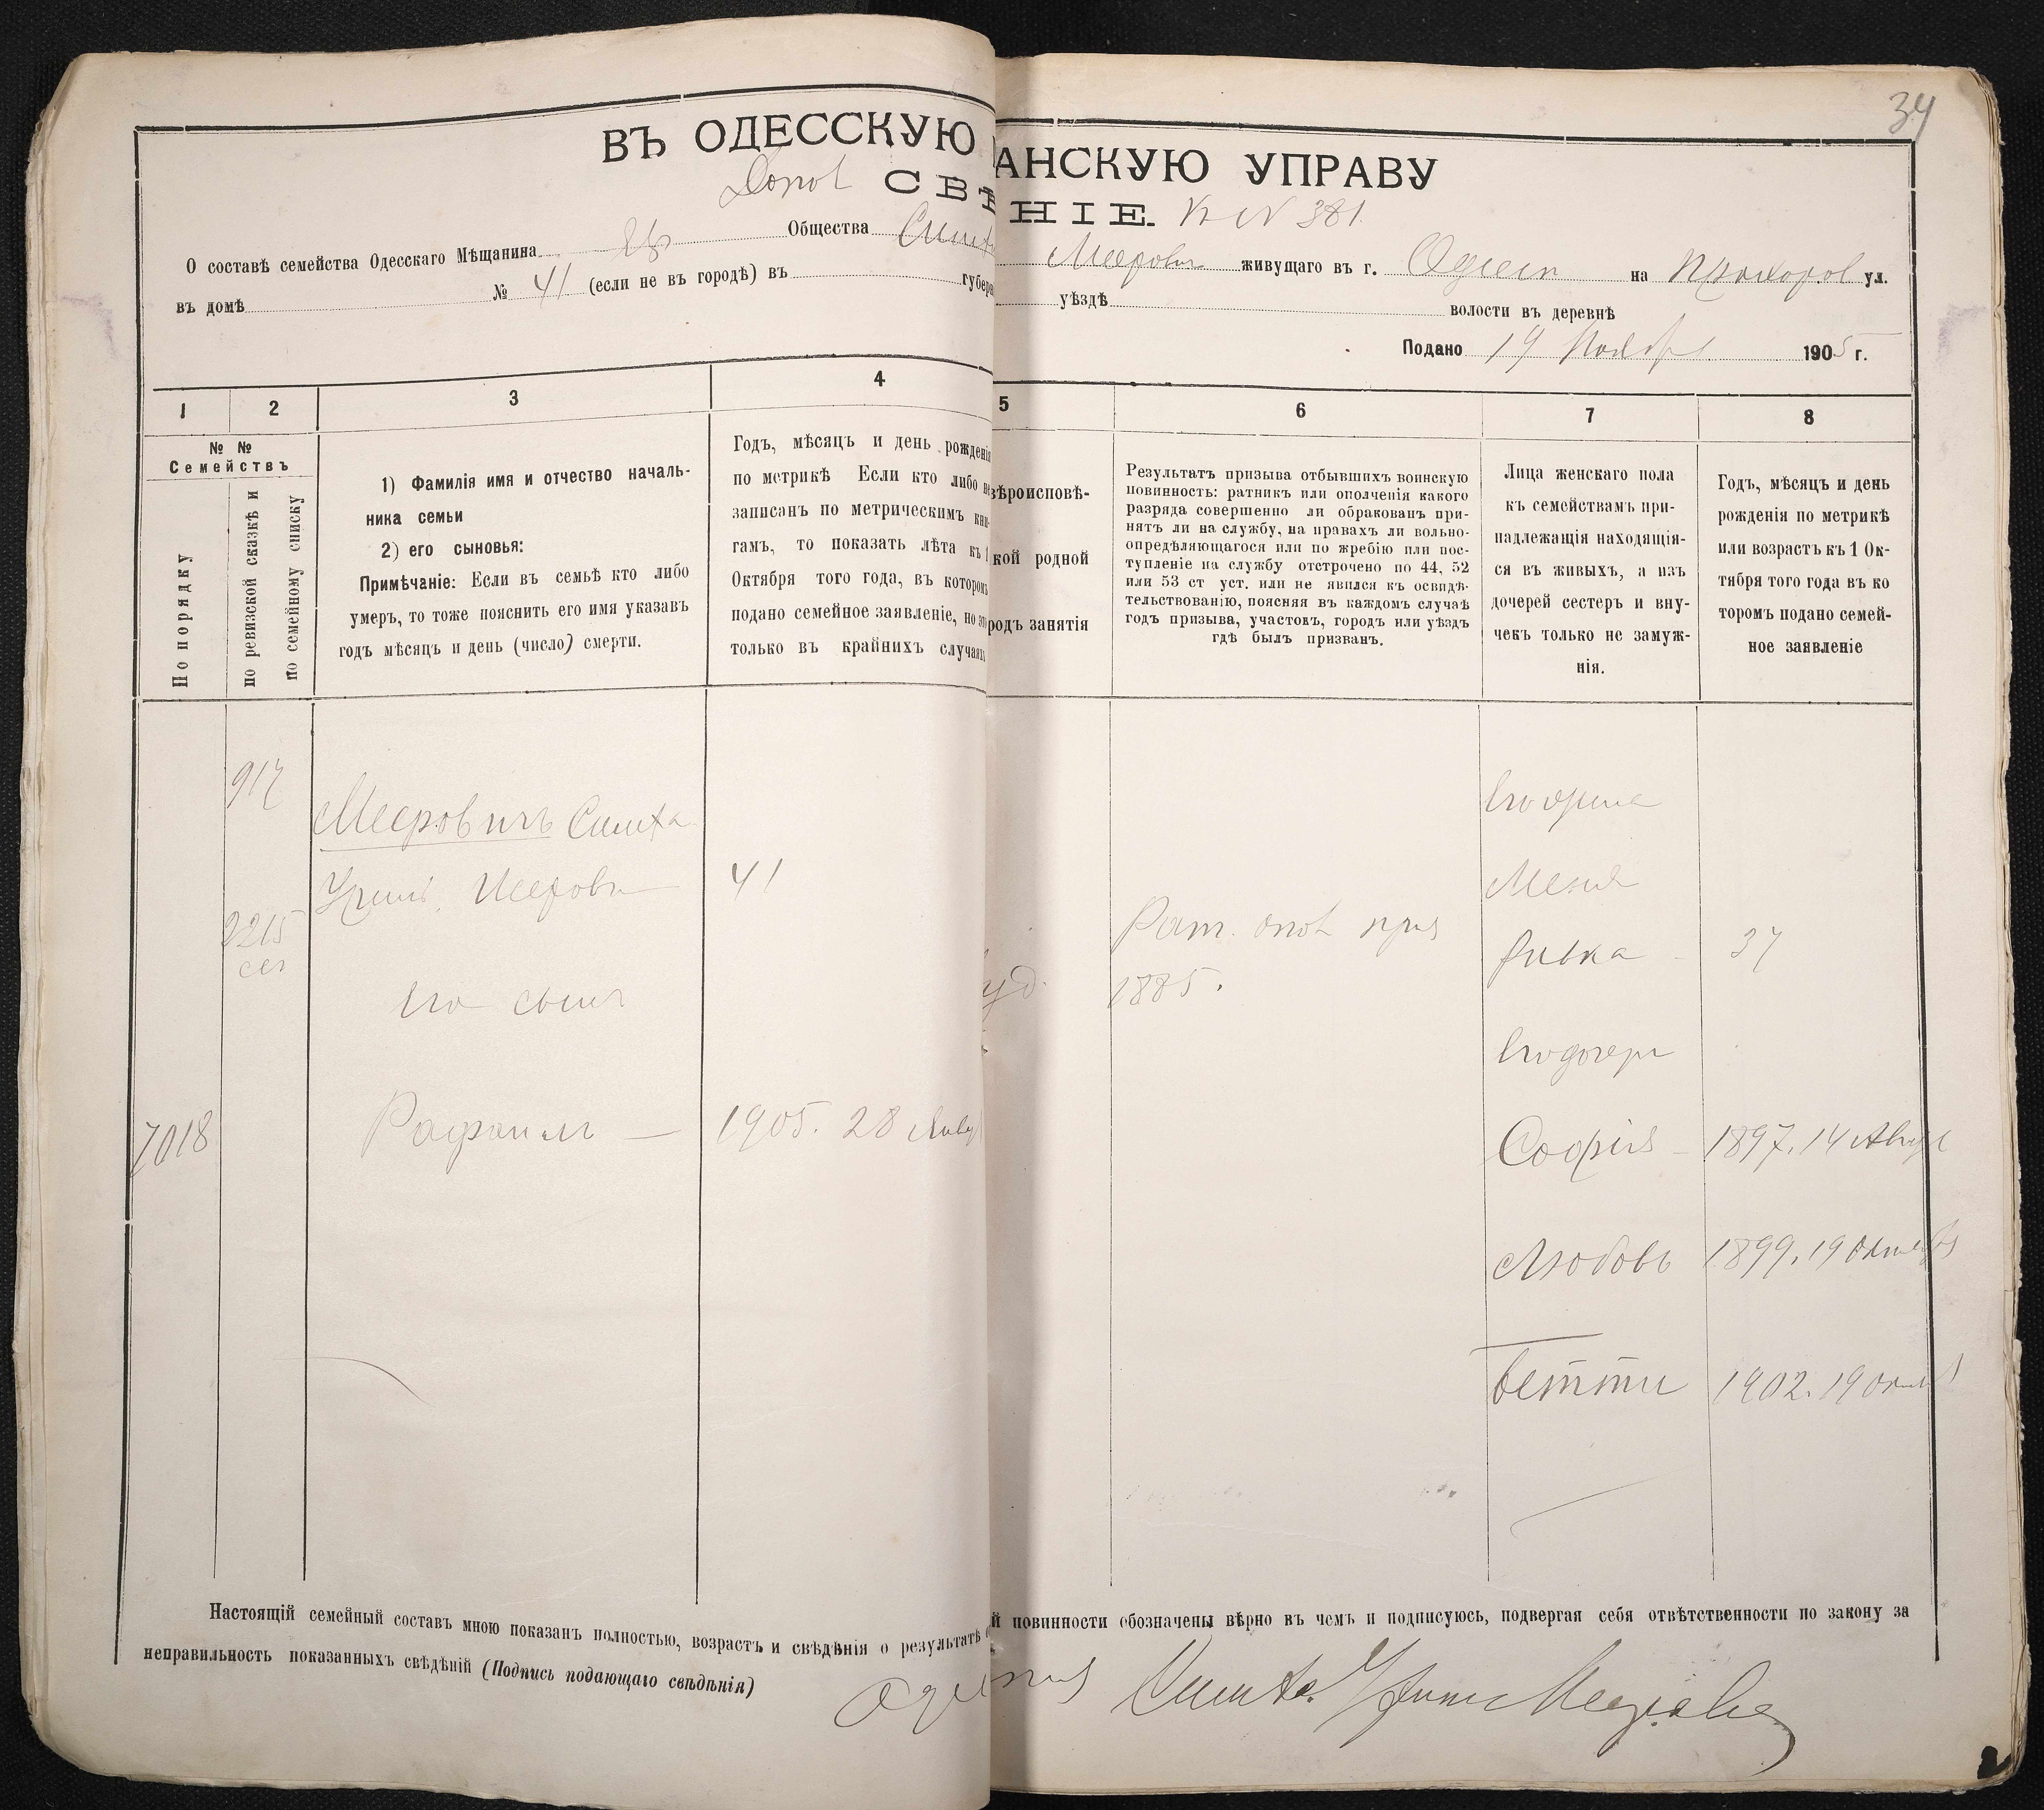 34
ВЪ ОДЕССКУЮ АНСКУЮ УПРАВУ
Допол СВѢ НІЕ. К № 381.
О составѣ семейства Одесскаго Мѣщанина Общества Симх Меерович живущаго въ г. Одессѣ на Прохоров ул.
въ домѣ № 41 (если не въ городѣ) въ губерн уѣздѣ волости въ деревнѣ
Подано 19 Ноября 1905 г.
1 2 3 4 5 6 7 8
№ №
Семействъ
По порядку
по ревизской сказкѣ и
по семейному списку
1) Фамилія имя и отчество началь-
ника семьи
2) его сыновья:
Примѣчаніе: Если въ семьѣ кто либо
умеръ, то тоже пояснить его имя указавъ
годъ мѣсяцъ и день (число) смерти.
Годъ, мѣсяцъ и день рожденія
по метрикѣ Если кто либо не
записанъ по метрическимъ кни-
гамъ, то показать лѣта къ 1
Октября того года, въ которомъ
подано семейное заявленіе, но это
только въ крайнихъ случаяхъ
вѣроисповѣ-
кой родной
родъ занятія
Результатъ призыва отбывшихъ воинскую
повинность: ратникъ или ополченія какого
разряда совершенно ли обракованъ при-
нятъ ли на службу, на правахъ ли вольно-
опредѣляющагося или по жребію или пос-
тупленіе на службу отстрочено по 44, 52
или 53 ст уст. или не явился къ освидѣ-
тельствованію, поясняя въ каждомъ случаѣ
годъ призыва, участокъ, городъ или уѣздъ
гдѣ былъ призванъ.
Лица женскаго пола
къ семействамъ при-
надлежащія находящія-
ся въ живыхъ, а изъ
дочерей сестеръ и вну-
чекъ только не замуж-
нія.
Годъ, мѣсяцъ и день
рожденія по метрикѣ
или возрастъ къ 1 Ок-
тября того года въ ко
торомъ подано семей-
ное заявленіе
917
Мееровичъ Симха
Урим. Меерови 41
2215
сем
Его сынъ
7018 Рафаилъ — 1905. 28 Январ
уд.
Рат. опол приз
1885.
Его жена
Меня
Ривка - 37
Его дочери
Софія - 1897. 14 Авгус
Любовь 1899. 19 Октября
Бетти 1902. 19 Октяб
Настоящій семейный составъ мною показанъ полностью, возрастъ и свѣдѣнія о результатѣ й повинности обозначены вѣрно въ чемъ и подписуюсь, подвергая себя отвѣтственности по закону за
неправильность показанныхъ свѣдѣній (Подпись подающаго свѣдѣнія)
Симха